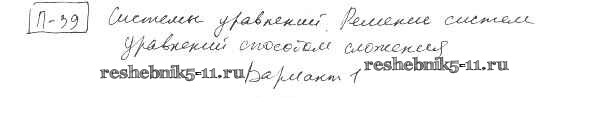 П-39 Системы уравнений. Решение систем
уравнений способом сложения
reshebnik5-11.ru Вариант 1 reshebnik5-11.ru